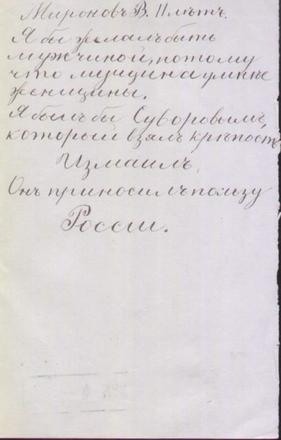 Мироновъ В. 11 лѣтъ.
Я бы желалъ быть
мужчиной, потому
что мущина умнѣе
женщины.
Я былъ бы Суворовымъ,
который взялъ крѣпость
Измаилъ.
Онъ приносилъ пользу
Россіи.